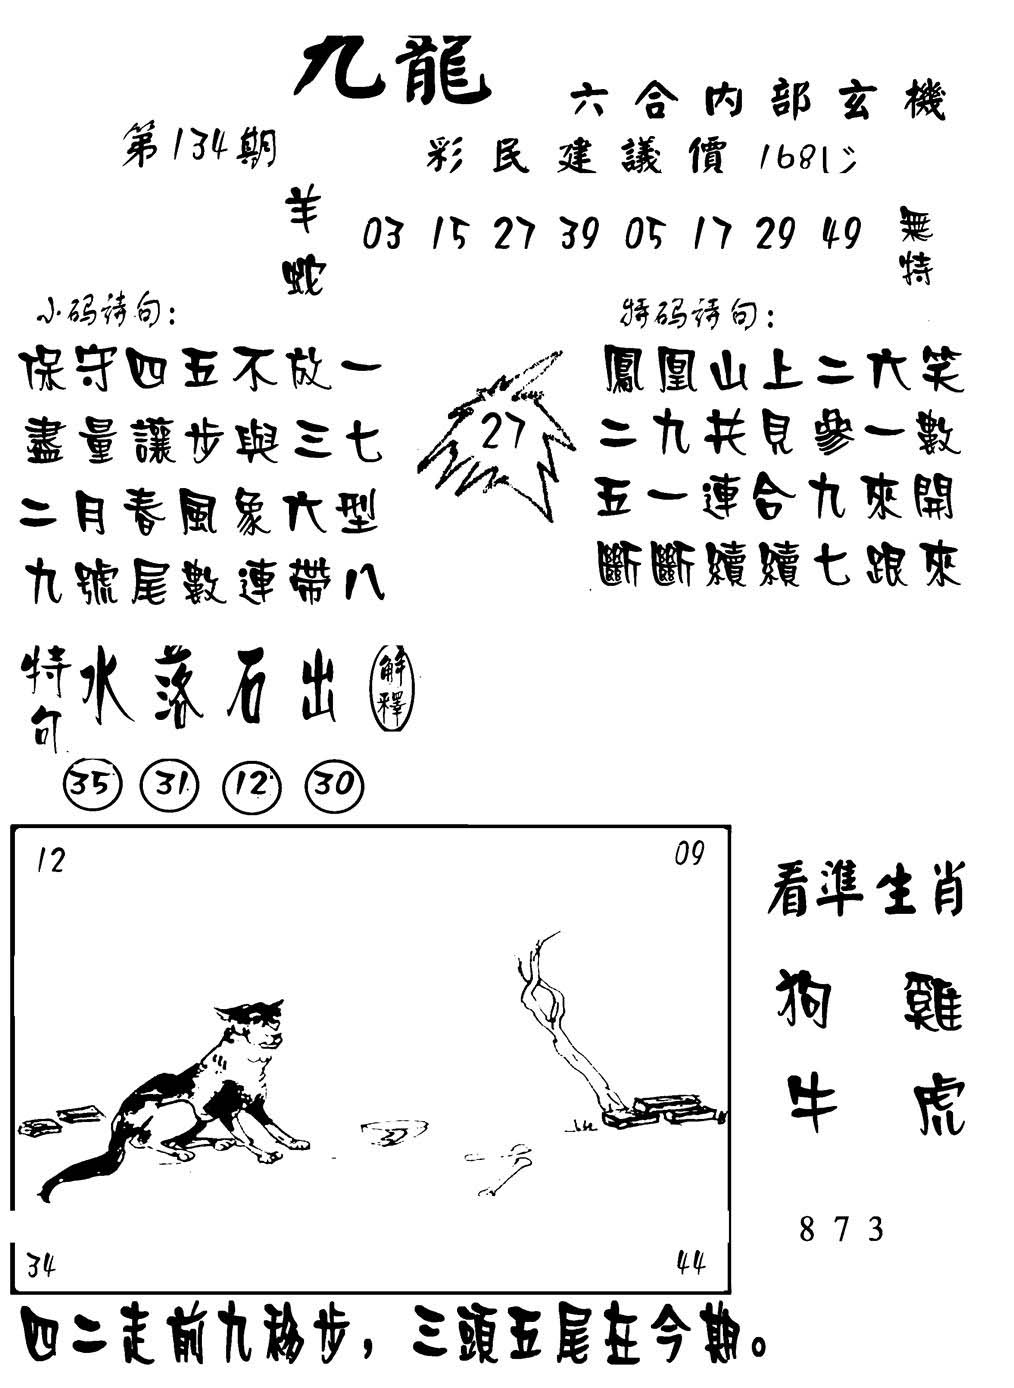 九龍
六合内部玄機
第134期
彩民建議價 168
羊
蛇
03 15 27 39 05 17 29 49
無特
小码诗句：
特码诗句：
保守四五不放一
盡量讓步與三七
二月春風象六型
九號尾數連帶八
27
鳳凰山上二六笑
二九共見參一數
五一連合九來開
斷斷續續七跟來
特句
水落石出
解釋
35 31 12 30
12
09
34
44
看準生肖
狗 雞
牛 虎
873
四二走前九移步，三頭五尾在今期。